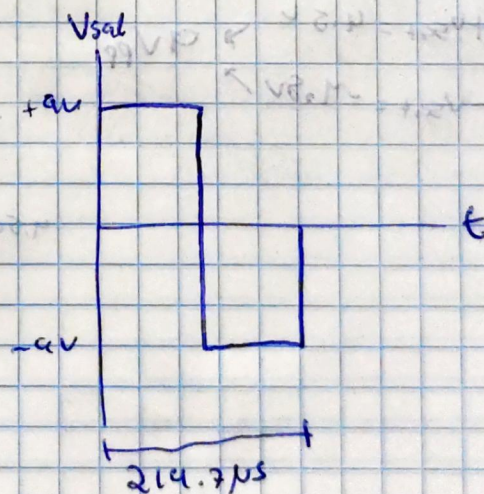 Vsal
+9V
t
-9V
214.7µs